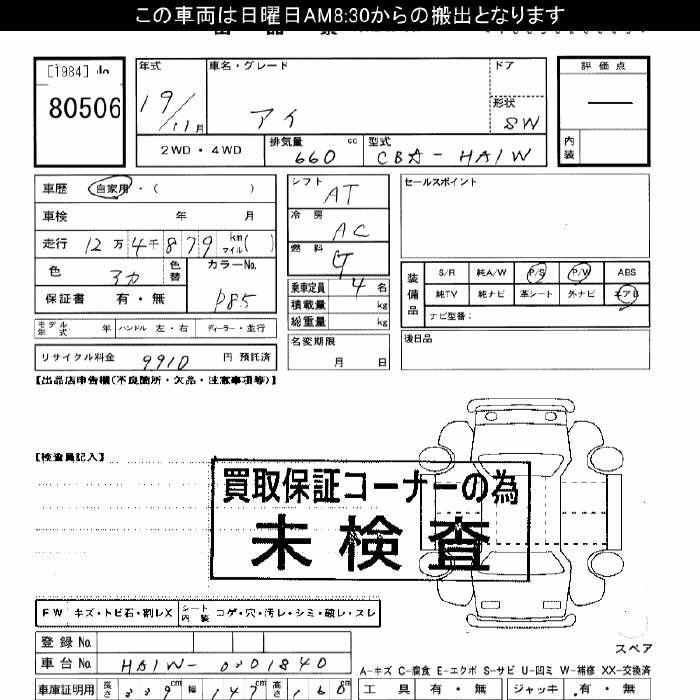 この車両は日曜日AM8:30からの搬出となります
[1984]
80506
年式
19/11月
車名・グレード
アイ
ドア
形状
SW
評価点
内装
2WD・4WD
排気量
660 cc
型式
CBA-HA1W
車歴 自家用・( )
車検 年 月
走行 12万4千879 km マイル( )
色 アカ
色替
カラーNo.
P85
保証書 有・無
モデル年式 年
ハンドル 左・右
ディーラー・並行
リサイクル料金 9910 円 預託済
シフト
AT
冷房
AC
燃料
G
乗車定員 4名
積載量 kg
総重量 kg
名変期限
月 日
セールスポイント
装備品
S/R 純A/W P/S P/W ABS
純TV 純ナビ 革シート 外ナビ エアB
ナビ型番:
後日品
【出品店申告欄(不良箇所・欠品・注意事項等)】
【検査員記入】
買取保証コーナーの為
未検査
FW キズ・トビ石・割レX
シート内装 コゲ・穴・汚レ・シミ・破レ・スレ
登録No.
車台No. HA1W-0301840
車庫証明用 長さ 339cm 幅 147cm 高さ 160
スペア
A-キズ C-腐食 E-エクボ S-サビ U-凹ミ W-補修 XX-交換済
工具 有・無
ジャッキ 有・無